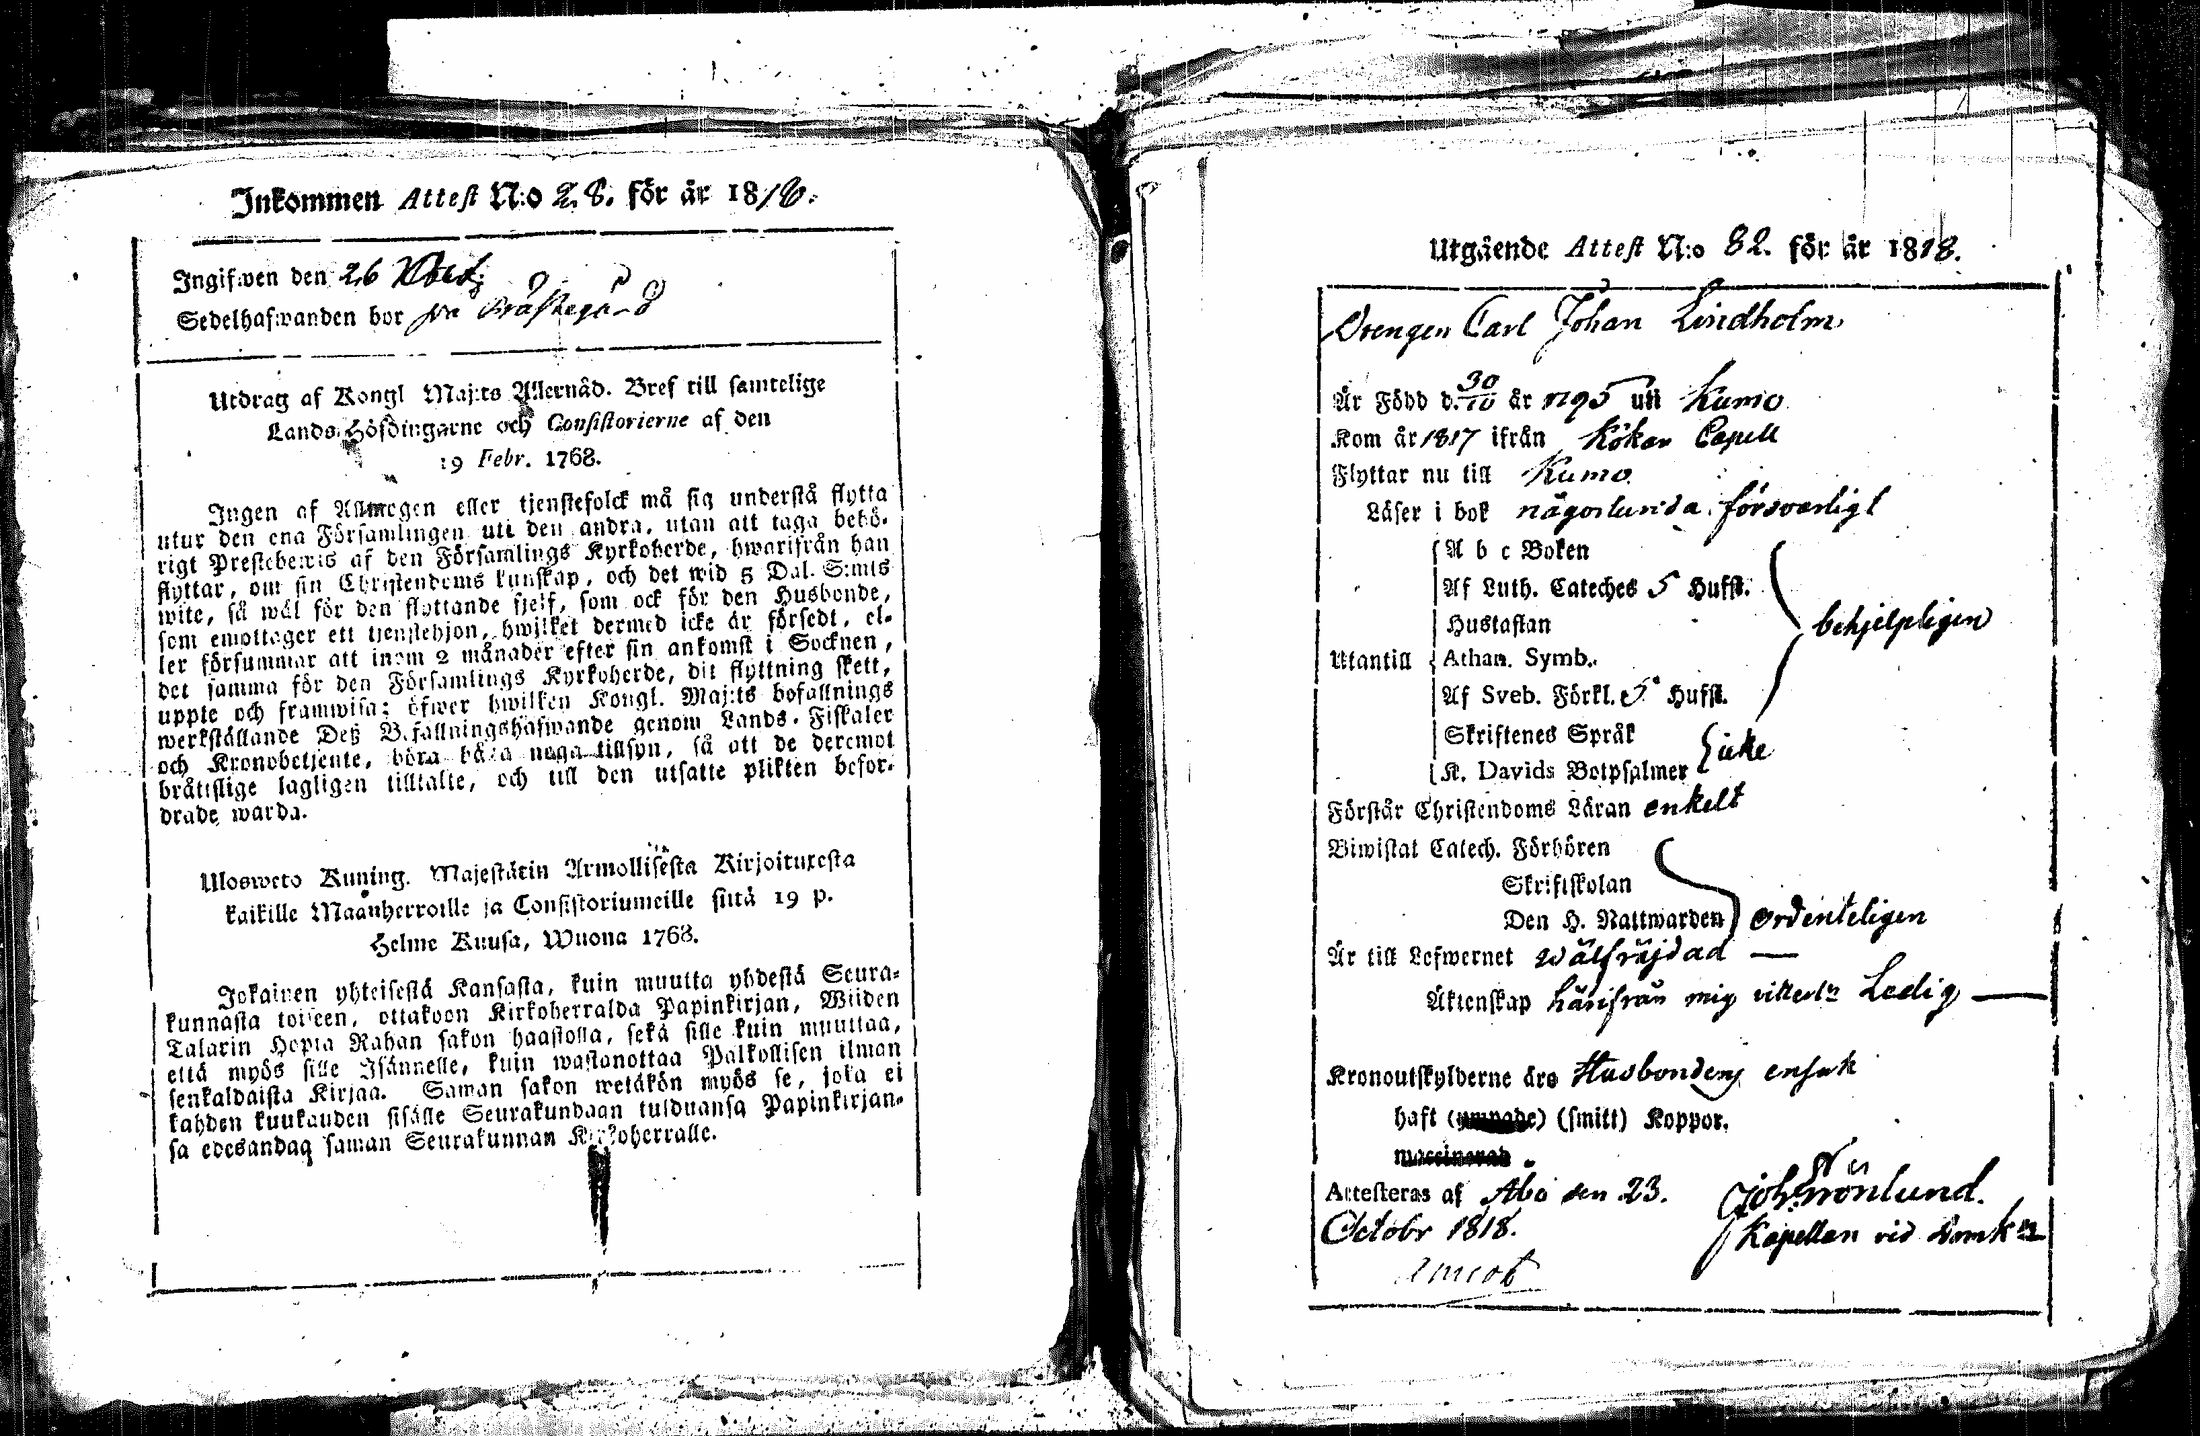 Inkommen Attest N:o 28. för år 1818.
Ingifwen den 26 Octob:
Sedelhafwanden bor på Prästegård
Utdrag af Kongl Maj:ts Allernåd. Bref till samtelige
Lands-Höfdingarne och Consistorierne af den
19 Febr. 1768.
Ingen af Allmogen eller tjenstefolck må sig understå flytta
utur den ena Församlingen uti den andra, utan att taga behö-
rigt Prestebewis af den Församlings Kyrkoherde, hwarifrån han
flyttar, om sin Christendoms kunskap, och det wid 5 Dal. S:mts
wite, så wäl för den flyttande sjelf, som ock för den Husbonde,
som emottager ett tjenstehjon, hwilket dermed icke är försedt, el-
ler försummar att inom 2 månader efter sin ankomst i Socknen,
det samma för den Församlings Kyrkoherde, dit flyttning skett,
uppte och framwisa; öfwer hwilken Kongl. Maj:ts befallnings
werkställande Deß Befallningshafwande genom Lands-Fiskaler
och Kronobetjente, böra bära noga tillsyn, så att de deremot
bråttslige lagligen tilltalte, och till den utsatte plikten befor-
drade warda.
Ulosweto Kuning. Majestätin Armollisesta Kirjoituxesta
kaikille Maanherroille ja Consistoriumeille siitä 19 p.
Helme Kuusa, Wuona 1768.
Jokainen yhteisestä Kansasta, kuin muutta yhdestä Seura-
kunnasta toiseen, ottakoon Kirkoherralda Papinkirjan, Wiiden
Talarin Hopia Rahan sakon haastolla, sekä sille kuin muuttaa,
että myös sille Isännelle, kuin wastanottaa Palkollisen ilman
senkaldaista Kirjaa. Saman sakon wetäkön myös se, joka ei
kahden kuukauden sisälle Seurakundaan tulduansa Papinkirjan-
sa edesandaq saman Seurakunnan Kirkoherralle.
Utgående Attest N:o 82. för år 1818.
Drengen Carl Johan Lindholm
Är Född d. 30/10 år 1795 uti Kumo
Kom år 1817 ifrån Kökar Capell
Flyttar nu till Kumo
Läser i bok någorlunda försvarligt
A b c Boken
Af Luth. Cateches 5 Hufst.
Hustaflan
behjelpligen
Utantill Athan. Symb.
Af Sveb. Förkl. 5 Hufst.
Skriftenes Språk
icke
K. Davids Botpsalmer
Förstår Christendoms Läran enkelt
Biwistat Catech. Förhören
Skriftskolan
Den H. Nattwarden ordenteligen
Är till Lefwernet wälfräjdad —
Äktenskap härifrån mig vitterl:n Ledig —
Kronoutskylderne äro Husbondens ensak
haft (smitt) Koppor.
Attesteras af Åbo den 23.
Octobr 1818.
Joh: Grönlund.
Kapellan vid Domk:n